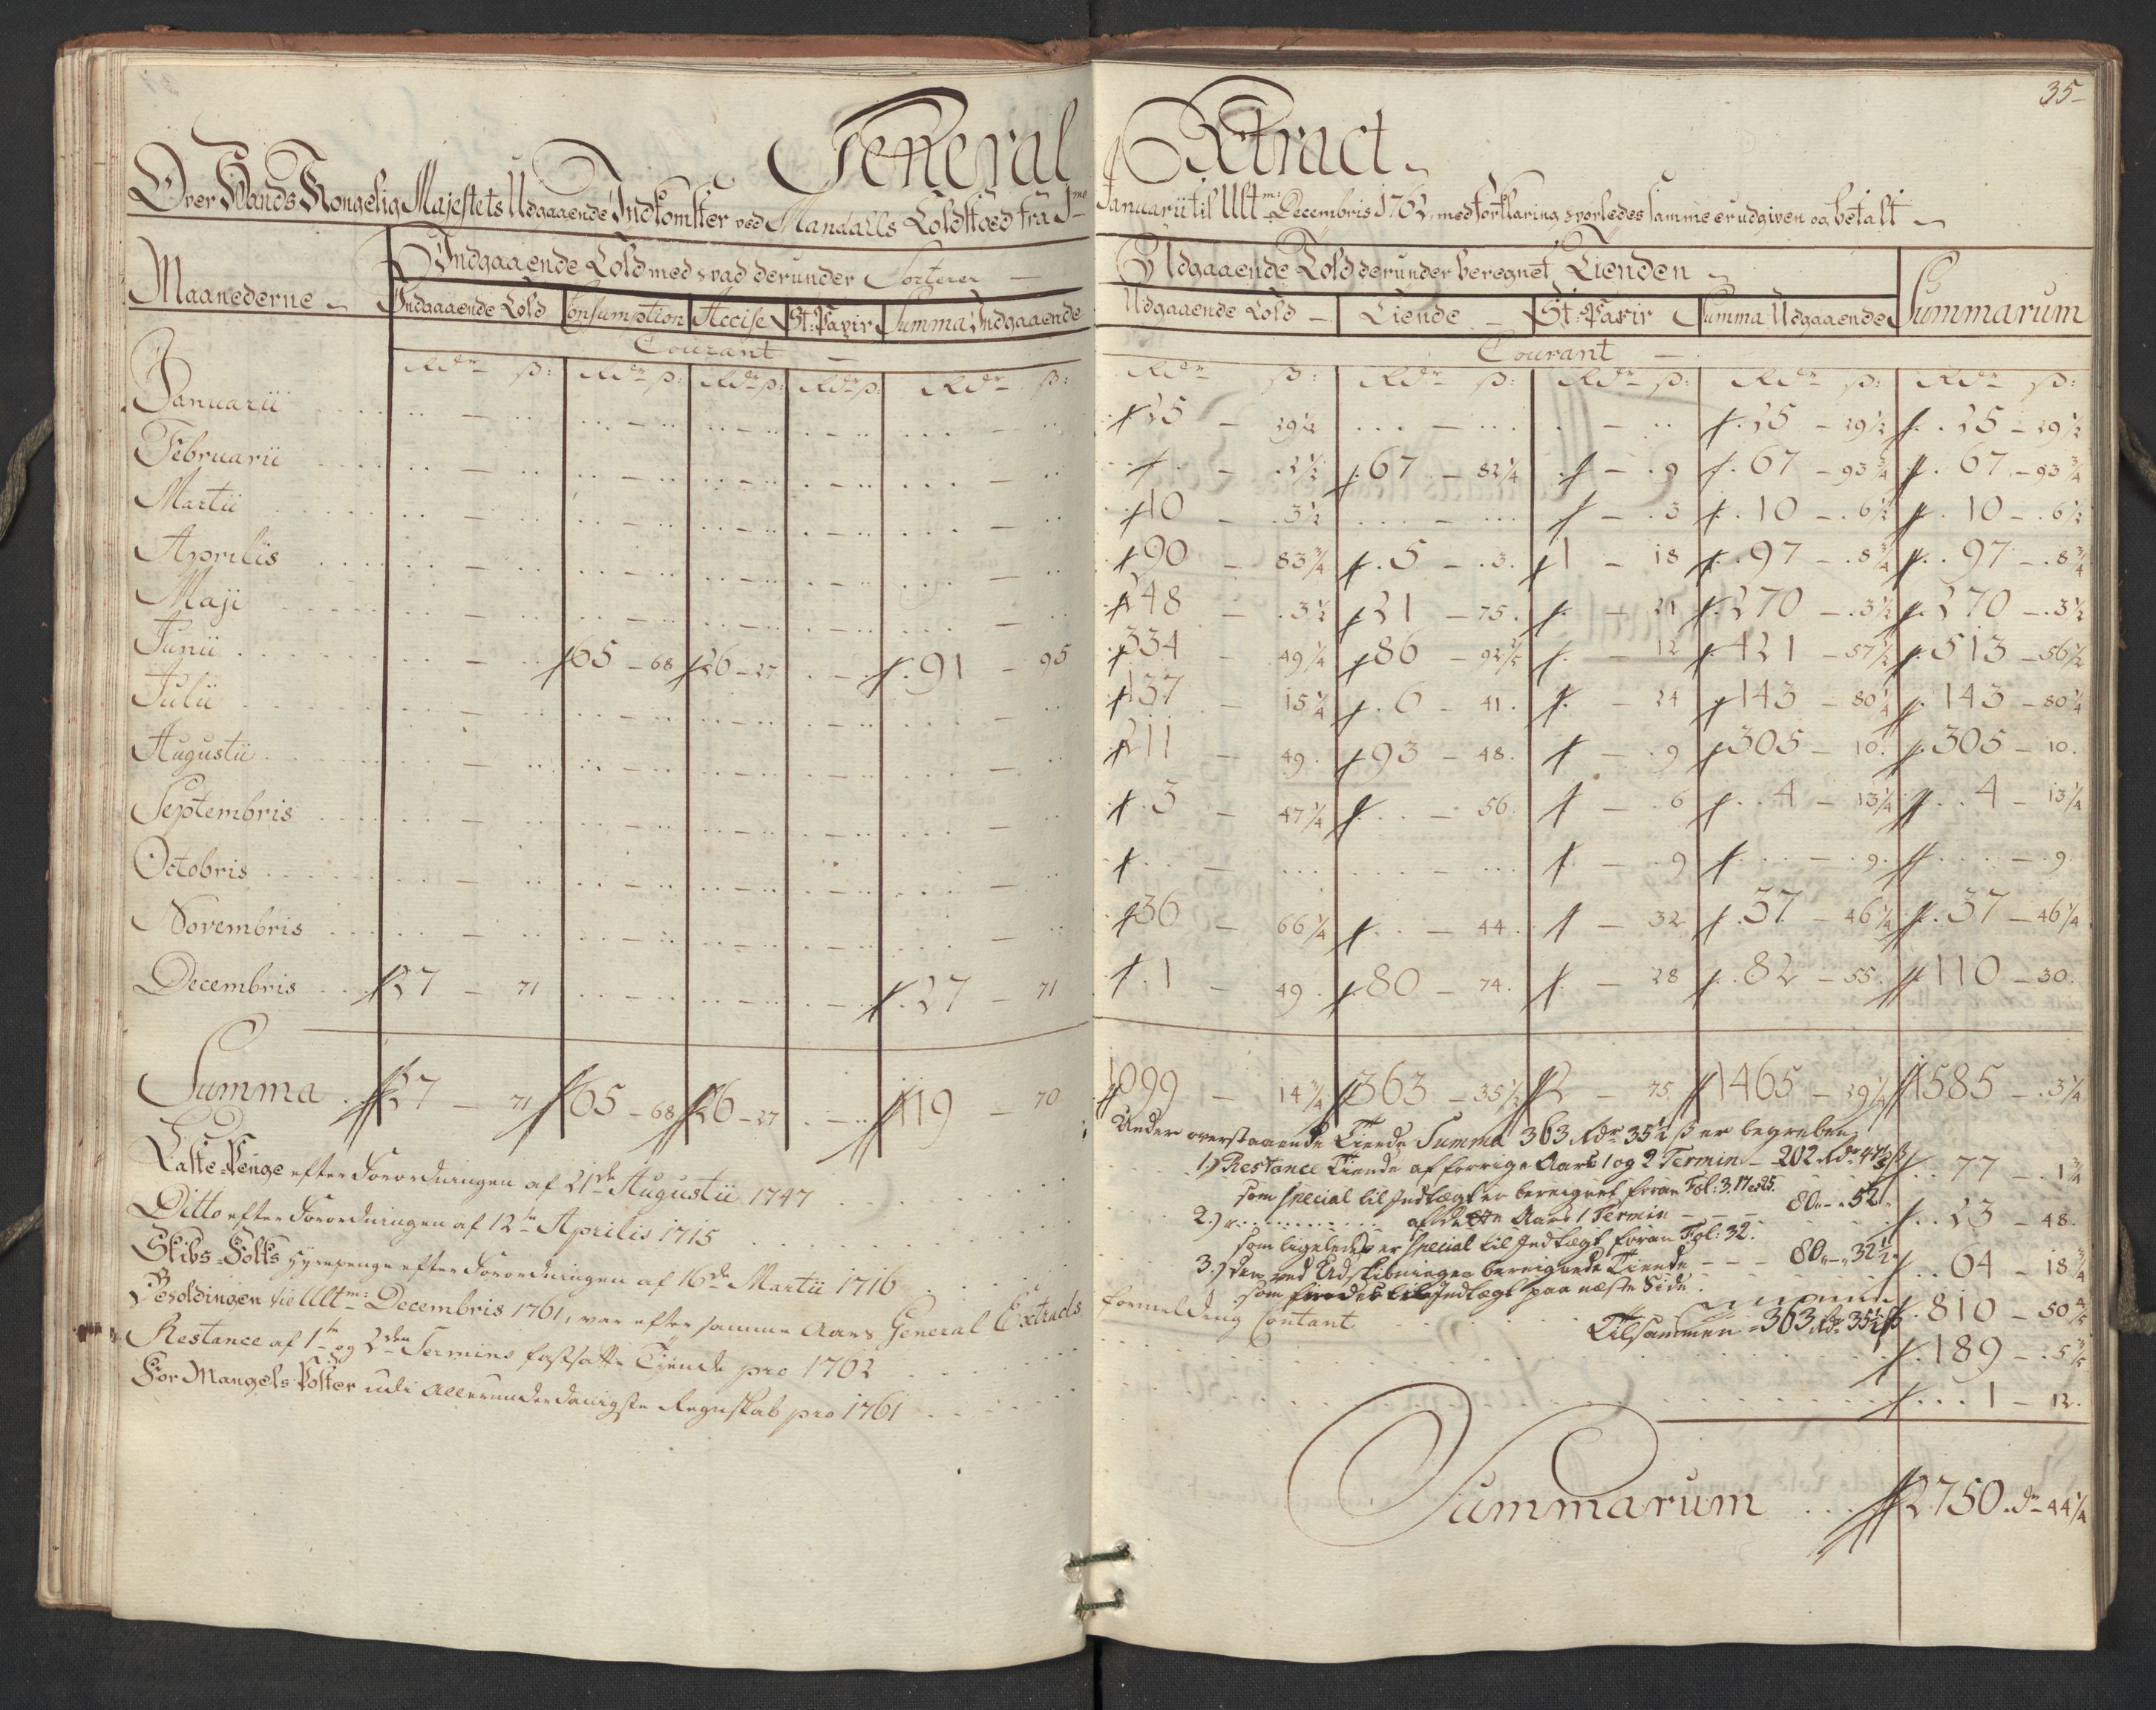 35-
General Extract
Over Hands Kongelig Majestets Udgaaende Indkomster ved Mandalls Toldsted fra 1mo Januarii til Ultm: Decembris 1762, med forklaring hvorledes samme er udgiven og betalt
Maanederne
Indgaaende Told med hvad derunder Sorterer
Udgaaende Told derunder beregnet Tienden
Summarum
Indgaaende Told Consumption Accise St: Papir Summa Indgaaende Udgaaende Told Tiende St: Papir Summa Udgaaende
Courant Courant
Rdr ß: Rdr ß: Rdr ß: Rdr ß: Rdr ß: Rdr ß: Rdr ß: Rdr ß: Rdr ß: Rdr ß:
Januarii 25 - 29½ 25 - 29½ 25 - 29½
Februarii - 2½ 67 - 82¼ - 9 67 - 93¾ 67 - 93¾
Martii 10 - 3½ - 3 10 - 6½ 10 - 6½
Aprilis 90 - 83¾ 5 - 3 1 - 18 97 - 8¾ 97 - 8¾
Maji 248 - 3½ 21 - 75 - 21 270 - 3½ 270 - 3½
Junii 65 - 68 26 - 27 91 - 95 334 - 49¼ 86 - 92 - 12 421 - 57½ 513 - 56½
Julii 137 - 15¼ 6 - 41 - 24 143 - 80¼ 143 - 80¼
Augustii 211 - 49 93 - 48 - 9 305 - 10 305 - 10
Septembris 3 - 47¼ - 56 - 6 4 - 13¼ 4 - 13¼
Octobris - 9 - 9 - 9
Novembris 36 - 66¼ - 44 - 32 37 - 46¼ 37 - 46¼
Decembris 27 - 71 27 - 71 1 - 49 80 - 74 - 28 82 - 55 110 - 30
Summa 27 - 71 65 - 68 26 - 27 119 - 70 1099 - 14¾ 363 - 35½ 2 - 75 1465 - 29¼ 1585 - 3¼
Laste-Penge efter Forordningen af 21de Augustii 1747 77 - 1¾
Ditto efter Forordningen af 12te Aprilis 1715 23 - 48
Skibs-Folks Hyrepenge efter Forordningen af 16de Martii 1716 64 - 18¾
Beholdingen til Ultm: Decembris 1761, var efter samme Aars General Extracts
formelding Contant 810 - 50⅘
Restance af 1te og 2den Termins fastsatte Tiende pro 1762 189 - 5⅗
For Mangels-Poster udi Allerunderdanigste Regnskab pro 1761 1 - 12
Under overstaaende Tiende Summa 363 Rdr 35½ ß er begreben
1.) Restance Tiende af forrige Aars 1 og 2 Termin - 202 Rdr 47 ß
som special til Indtægt er beregnet foran Fol: 3. 17 25.
2.) af dette Aars 1 Termin - - - 80 - 52
som ligeledes er special til Indtægt foran Fol: 32.
3.) den ved Udskibningen beregnede Tiende - - - 80 - 32
som findes til Indtægt paa næste Side.
Tilsammen - 363 Rdr 35½ ß
Summarum 2750 dr 44¼